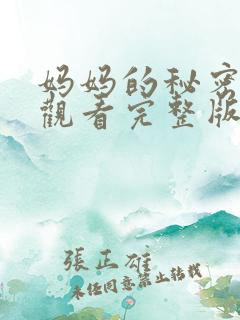 妈妈的秘密
觀看完整版
張正雄
未经同意禁止转载